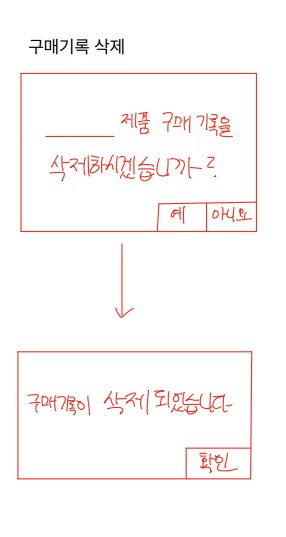 구매기록 삭제
______ 제품 구매 기록을
삭제하시겠습니까?
예 아니요
구매기록이 삭제되었습니다
확인